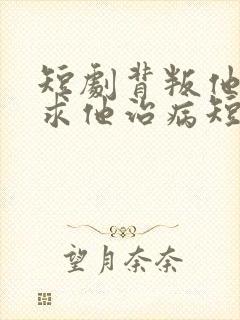 短劇背叛他
求他治病短
望月奈奈